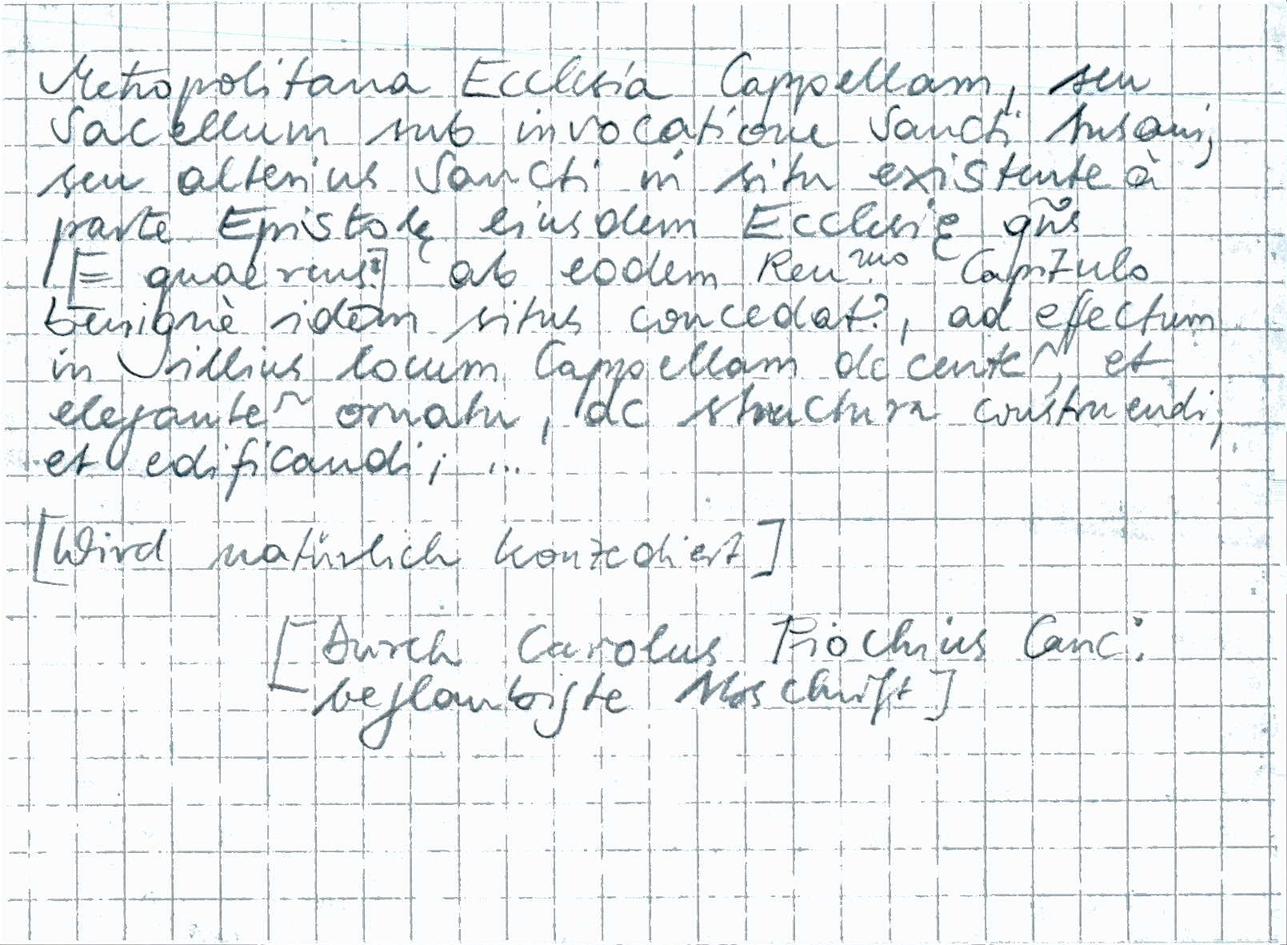 Metropolitana Ecclesia Cappellam, seu
Sacellum sub invocatione Sancti Ansani,
seu alterius Sancti in situ existente à
parte Epistolę eiusdem Ecclesię qñs
[= quaerens?] ab eodem Reu.mo Capitulo
benignè idem situs concedat?, ad effectum
in illius locum Cappellam decente~, et
elegante~ ornatu, ac structura construendi,
et edificandi; ...
[Wird natürlich konzediert]
[Durch Carolus Piochius Canc:
beglaubigte Abschrift]